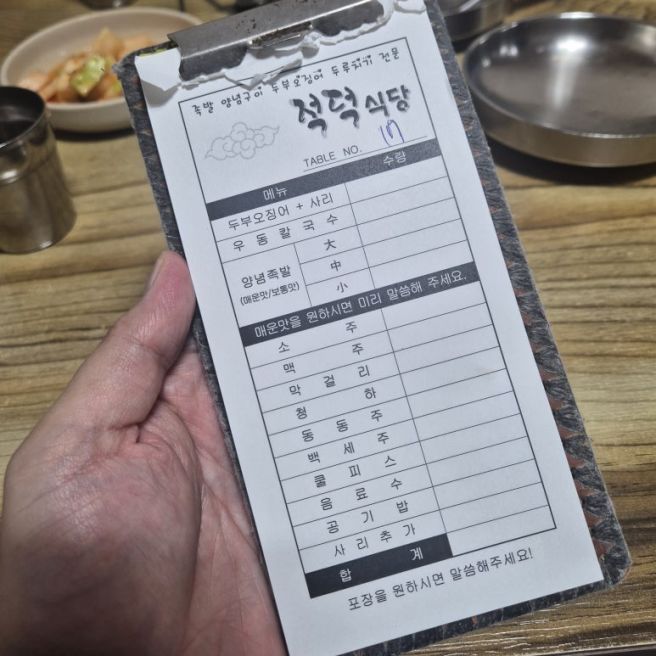 족발 양념구이 두부오징어 두루치기 전문
적덕식당
TABLE NO. 17
메뉴 수량
두부오징어 + 사리
우동칼국수
양념족발 (매운맛/보통맛) 大
中
小
매운맛을 원하시면 미리 말씀해 주세요.
소주
맥주
막걸리
청하
동동주
백세주
쿨피스
음료수
공기밥
사리추가
합계
포장을 원하시면 말씀해주세요!